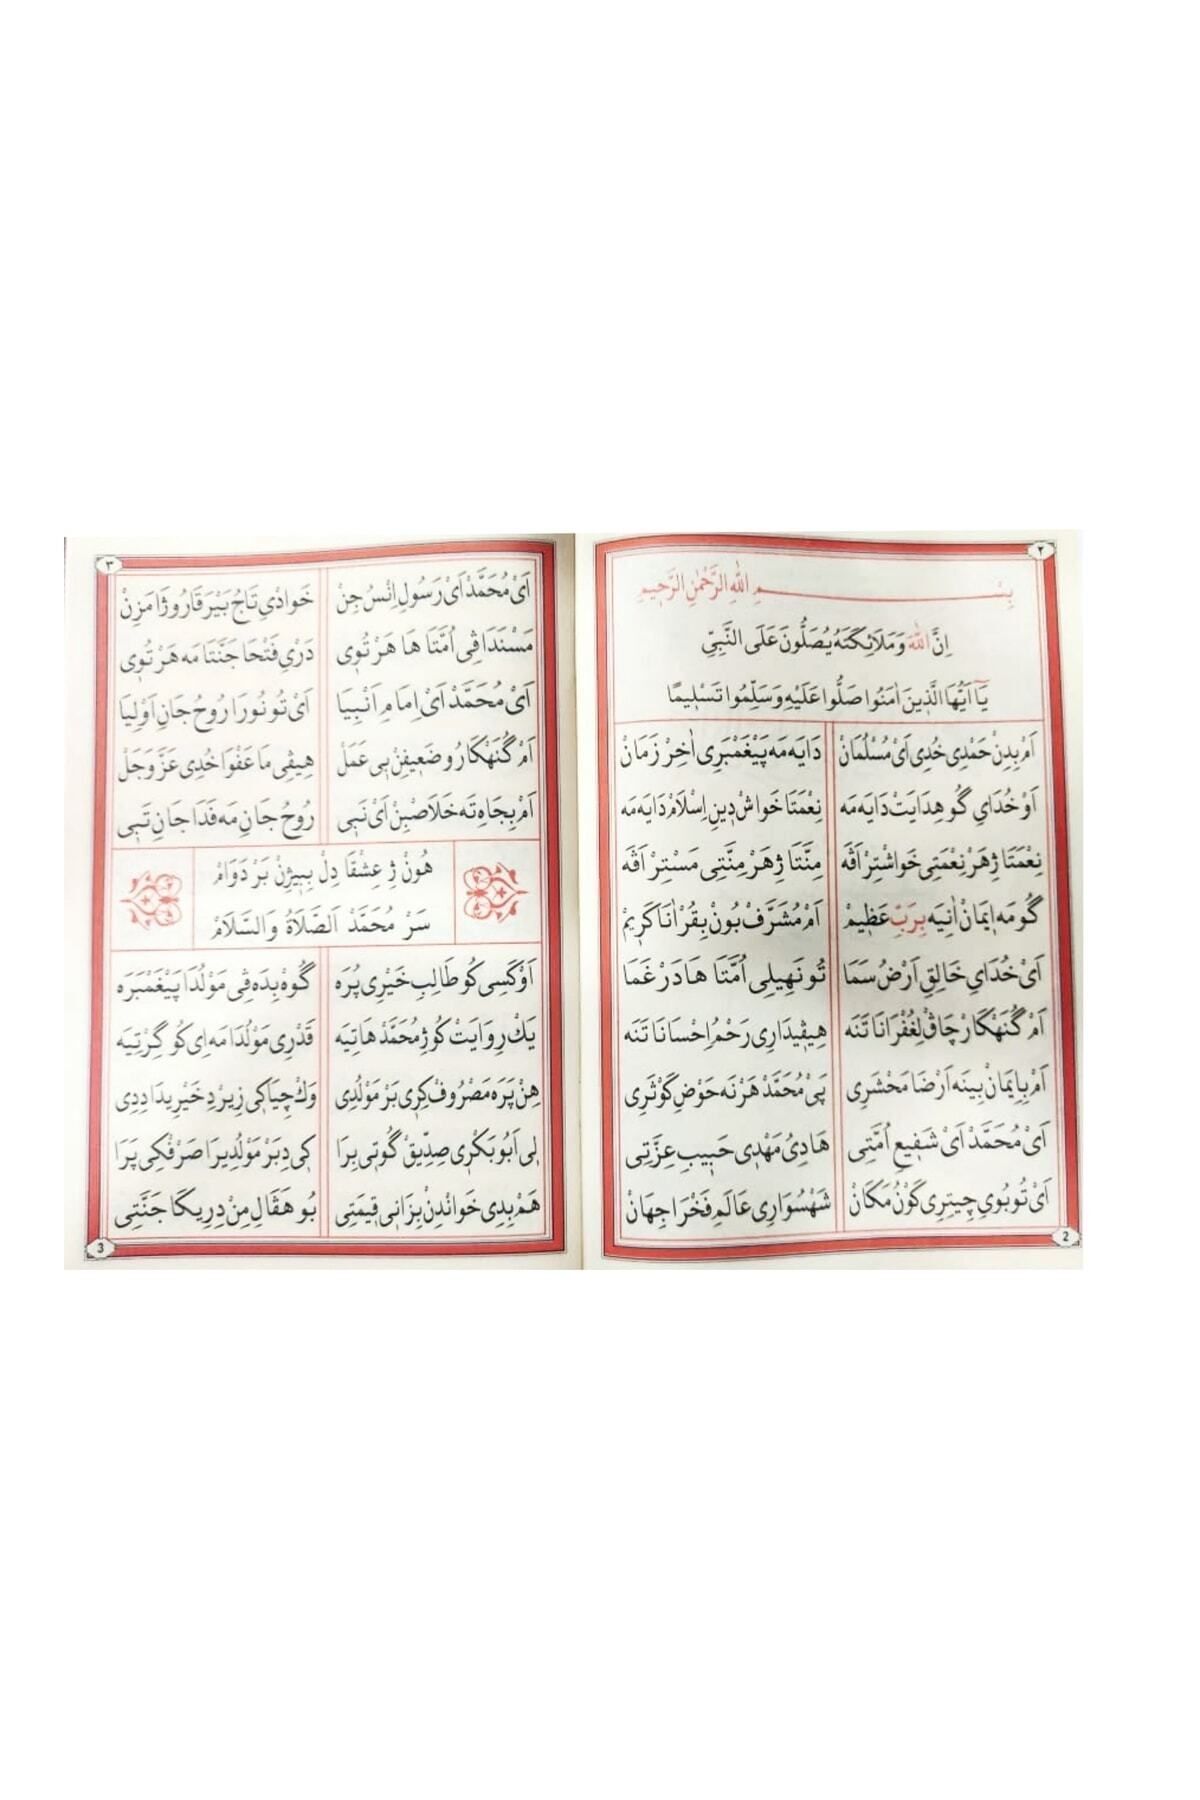 ٢
بِسْمِ اللّٰهِ الرَّحْمٰنِ الرَّحِيمِ
اِنَّ اللّٰهَ وَمَلَائِكَتَهُ يُصَلُّونَ عَلَى النَّبِيِّ
يَآ اَيُّهَا الَّذِينَ اٰمَنُوا صَلُّوا عَلَيْهِ وَسَلِّمُوا تَسْلِيمًا
اَمْ بِدِنْ حَمْدِى خُدِى اَىْ مُسْلْمَانْ دَايَه مَه پَيْغَمْبَرِى اٰخِرْ زَمَانْ
اَوْ خُدَاىِ گُو هِدَايَتْ دَايَه مَه نِعْمَتَا خَواشْ دِينِ اِسْلَامْ دَايَه مَه
نِعْمَتَا ژِهَرْ نِعْمَتِى خَواشْتِرْ اَڤَه مِنَّتَا ژِهَرْ مِنَّتِى مَسْتِرْ اَڤَه
گُو مَه اِيمَانْ اٰنِيَه بِرَبِّ عَظِيمْ اَمْ مُشَرَّفْ بُونْ بِقُرْاٰنَا كَرِيمْ
اَىْ خُدَاىِ خَالِقِ اَرْضُ سَمَا تُو نَهِيلِى اُمَّتَا هَا دَرْ غَمَا
اَمْ گُنَهْكَارْ چَاڤْ لِغُفْرَانَا تَنَه هِيڤِيدَارِى رَحْمُ اِحْسَانَا تَنَه
اَمْ بِاِيمَانْ بِينَه اَرْضَا مَحْشَرِى پَىْ مُحَمَّدْ هَرْنَه حَوْضِ كَوْثَرِى
اَىْ مُحَمَّدْ اَىْ شَفِيعِ اُمَّتِى هَادِىُ مَهْدِى حَبِيبِ عِزَّتِى
اَىْ تُو بُوىِ چِيتِرِى كَوْنُ مَكَانْ شَهْسُوَارِى عَالَمِ فَخْرَا جِهَانْ
2
٣
اَىْ مُحَمَّدْ اَىْ رَسُولِ اِنْسُ جِنْ خَوادْىِ تَاجُ بَيْرَقَا رُوژَا مَزِنْ
مَسْنَدَا ڤِى اُمَّتَا هَا هَرْ تُوِى دَرْىِ فَتْحَا جَنَّتَا مَه هَرْ تُوِى
اَىْ مُحَمَّدْ اَىْ اِمَامِ اَنْبِيَا اَىْ تُو نُورَا رُوحُ جَانِ اَوْلِيَا
اَمْ گُنَهْكَارُ وضَعِيفِنْ بِى عَمَلْ هِيڤِى مَا عَفْوَا خُدِى عَزَّ وَجَلْ
اَمْ بِجَاهِ تَه خَلَاصْبِنْ اَىْ نَبِى رُوحُ جَانِ مَه فَدَا جَانِ تَبِى
هُونْ ژِ عِشْقَا دِلْ بِبِيژِنْ بَرْ دَوَامْ
سَرْ مُحَمَّدْ اَلصَّلَاةُ وَالسَّلَامْ
اَوْ كَسِى كُو طَالِبِ خَيْرِى پُرَه گُوهْ بِدَه ڤِى مَوْلُدَا پَيْغَمْبَرَه
يَكْ رِوَايَتْ كُو ژِ مُحَمَّدْ هَاتِيَه قَدْرِى مَوْلُدَا مَه اِى كُو گِرْتِيَه
هِنْ پَرَه مَصْرُوفْ كِرِى بَرْ مَوْلُدِى وَكْ چِيَاكِى زِيرْ دِخَيْرِيدَا دِدِى
لِى اَبُو بَكْرِى صِدِّيقْ گُوتِى بِرَا كِى دِبَرْ مَوْلُدِيرَا صَرْفْكِى پَرَا
هَمْ بِدِى خَوانْدِنْ بِزَانِى قِيمَتِى بُو هَڤَالِ مِنْ دِرِيكَا جَنَّتِى
3